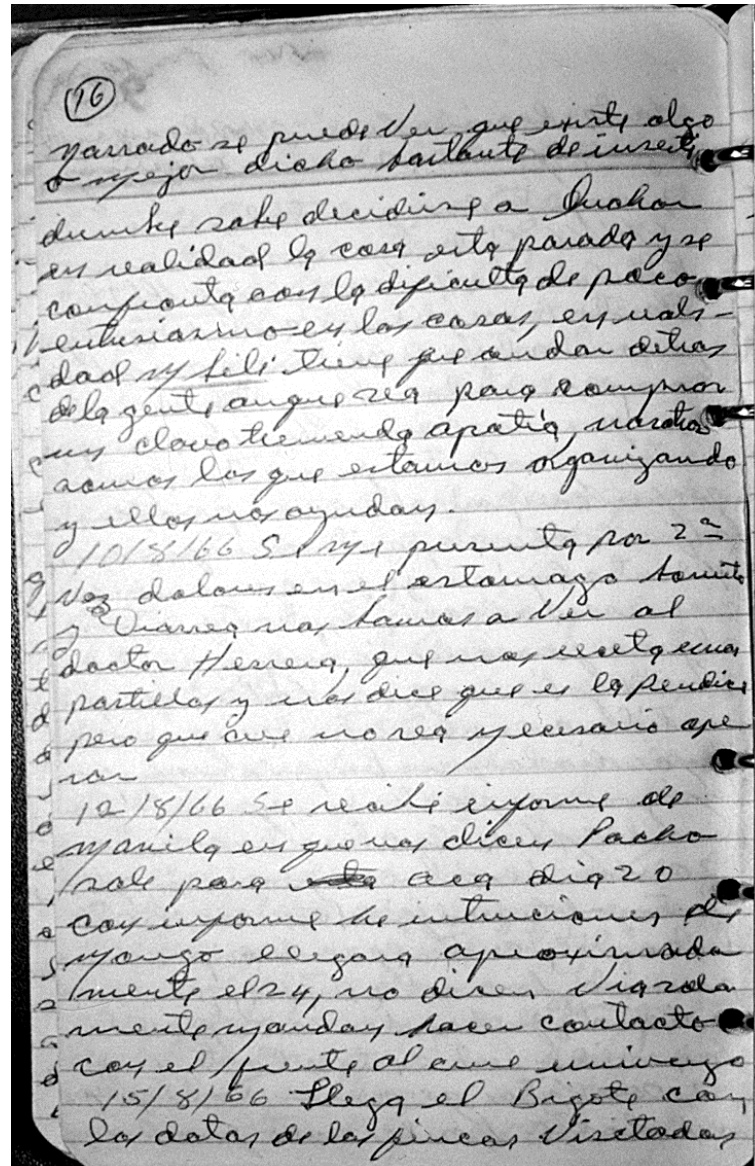 16
narrado se puede ver que existe algo
o mejor dicho bastante de inserti
dumbre sobre decidirse a luchar
en realidad la cosa esta parada y se
confronta con la dificulta de poco
entusiasmo en las cosas, en reali-
dad m fili tiene que andar detras
de la gente aunque sea para comprar
un clavo tremenda apatia, nosotros
somos los que estamos organizando
y ellos nos ayudan.
10/8/66 Se me presenta por 2ª
vez dolores en el estomago
y nos vamos a ver al
doctor Herrera, que nos receta unas
pastillas y nos dice que es la pendice
pero que cree no sea necesario ope
rar
12/8/66 Se recibe informe de
manila en que nos dicen Pacho
sale para aca dia 20
con informe he intruciones de
mongo llegara aproximada
mente el 24, no dicen
mente mandan hacer contacto
con el frente al cual
15/8/66 Llega el Bigote con
los datos de las fincas visitadas